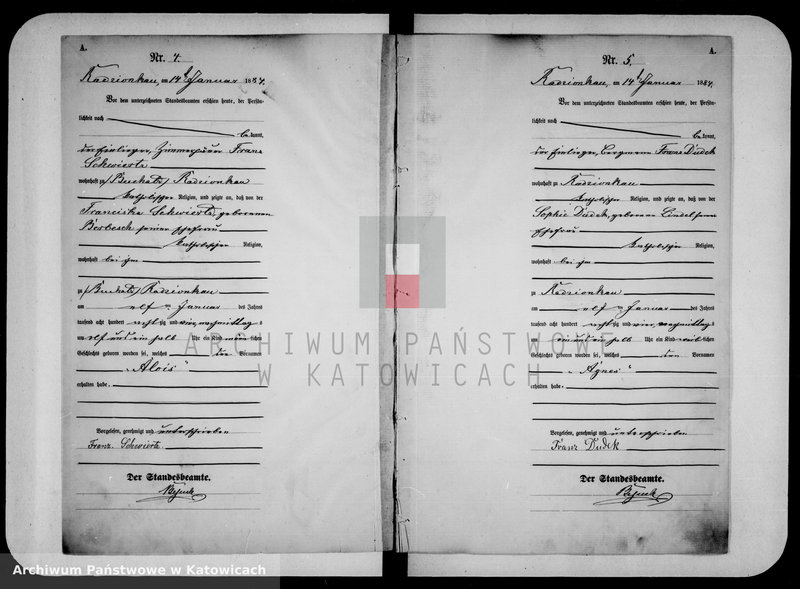 A.
Nr. 4.
Radzionkau, am 14t Januar 1884.
Vor dem unterzeichneten Standesbeamten erschien heute, der Persön-
lichkeit nach
bekannt,
der Einlieger, Zimmerhäuer Franz
Schwiertz
wohnhaft zu (Buchatz) Radzionkau
katholischer Religion, und zeigte an, daß von der
Franciska Schwiertz, geborenen
seiner Ehefrau
katholischer Religion,
wohnhaft bei ihm
zu (Buchatz) Radzionkau
am elf ten Januar des Jahres
tausend acht hundert achtzig und vier, nachmittag s
um elf und ein halb Uhr ein Kind männlichen
Geschlechts geboren worden sei, welches den Vornamen
„Alois“
erhalten habe.
Vorgelesen, genehmigt und unterschrieben
Franz Schwiertz
Der Standesbeamte.
A.
Nr. 5.
Radzionkau, am 14t Januar 1884.
Vor dem unterzeichneten Standesbeamten erschien heute, der Persön-
lichkeit nach
bekannt,
der Einlieger, Bergmann Franz Dudek
wohnhaft zu Radzionkau
katholischer Religion, und zeigte an, daß von der
Sophie Dudek, geborenen seiner
Ehefrau
katholischer Religion,
wohnhaft bei ihm
zu Radzionkau
am elf ten Januar des Jahres
tausend acht hundert achtzig und vier, nachmittag s
um ein halb Uhr ein Kind weiblichen
Geschlechts geboren worden sei, welches den Vornamen
„Agnes“
erhalten habe.
Vorgelesen, genehmigt und unterschrieben
Franz Dudek
Der Standesbeamte.
ARCHIWUM PAŃSTWOWE
W KATOWICACH
Archiwum Państwowe w Katowicach